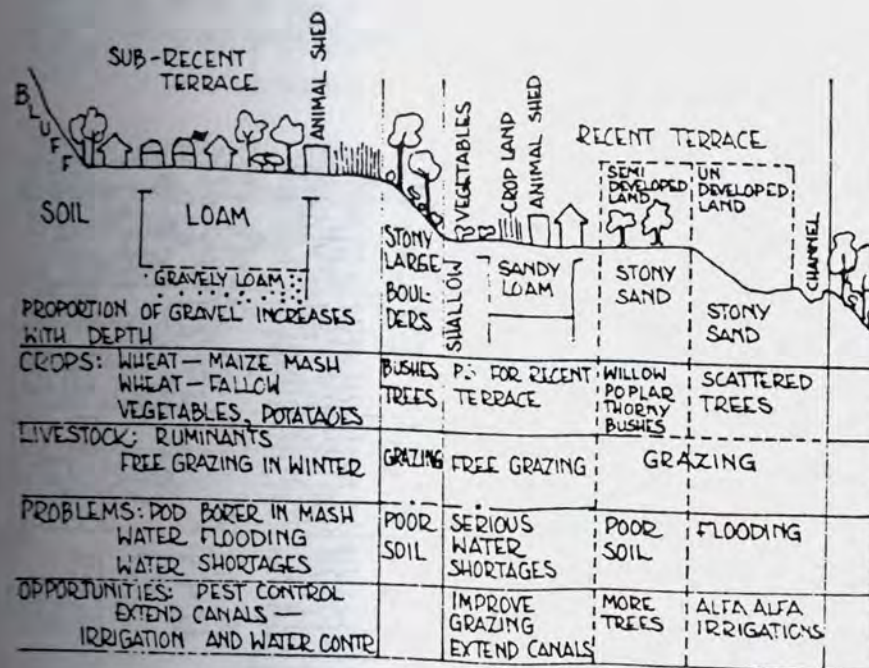 SUB-RECENT
TERRACE
ANIMAL SHED
BLUFF
VEGETABLES
CROP LAND
ANIMAL SHED
RECENT TERRACE
SEMI
DEVELOPED
LAND
UN
DEVELOPED
LAND
CHANNEL
SOIL
LOAM
GRAVELY LOAM
PROPORTION OF GRAVEL INCREASES
WITH DEPTH
STONY
LARGE
BOUL-
DERS
SHALLOW
SANDY
LOAM
STONY
SAND
STONY
SAND
CROPS: WHEAT — MAIZE MASH
WHEAT — FALLOW
VEGETABLES, POTATAGES
BUSHES
TREES
FOR RECENT
TERRACE
WILLOW
POPLAR
THORNY
BUSHES
SCATTERED
TREES
LIVESTOCK: RUMINANTS
FREE GRAZING IN WINTER
GRAZING
FREE GRAZING
GRAZING
PROBLEMS: POD BORER IN MASH
WATER FLOODING
WATER SHORTAGES
POOR
SOIL
SERIOUS
WATER
SHORTAGES
POOR
SOIL
FLOODING
OPPORTUNITIES: PEST CONTROL
EXTEND CANALS —
IRRIGATION AND WATER CONTR
IMPROVE
GRAZING
EXTEND CANALS
MORE
TREES
ALFA ALFA
IRRIGATIONS